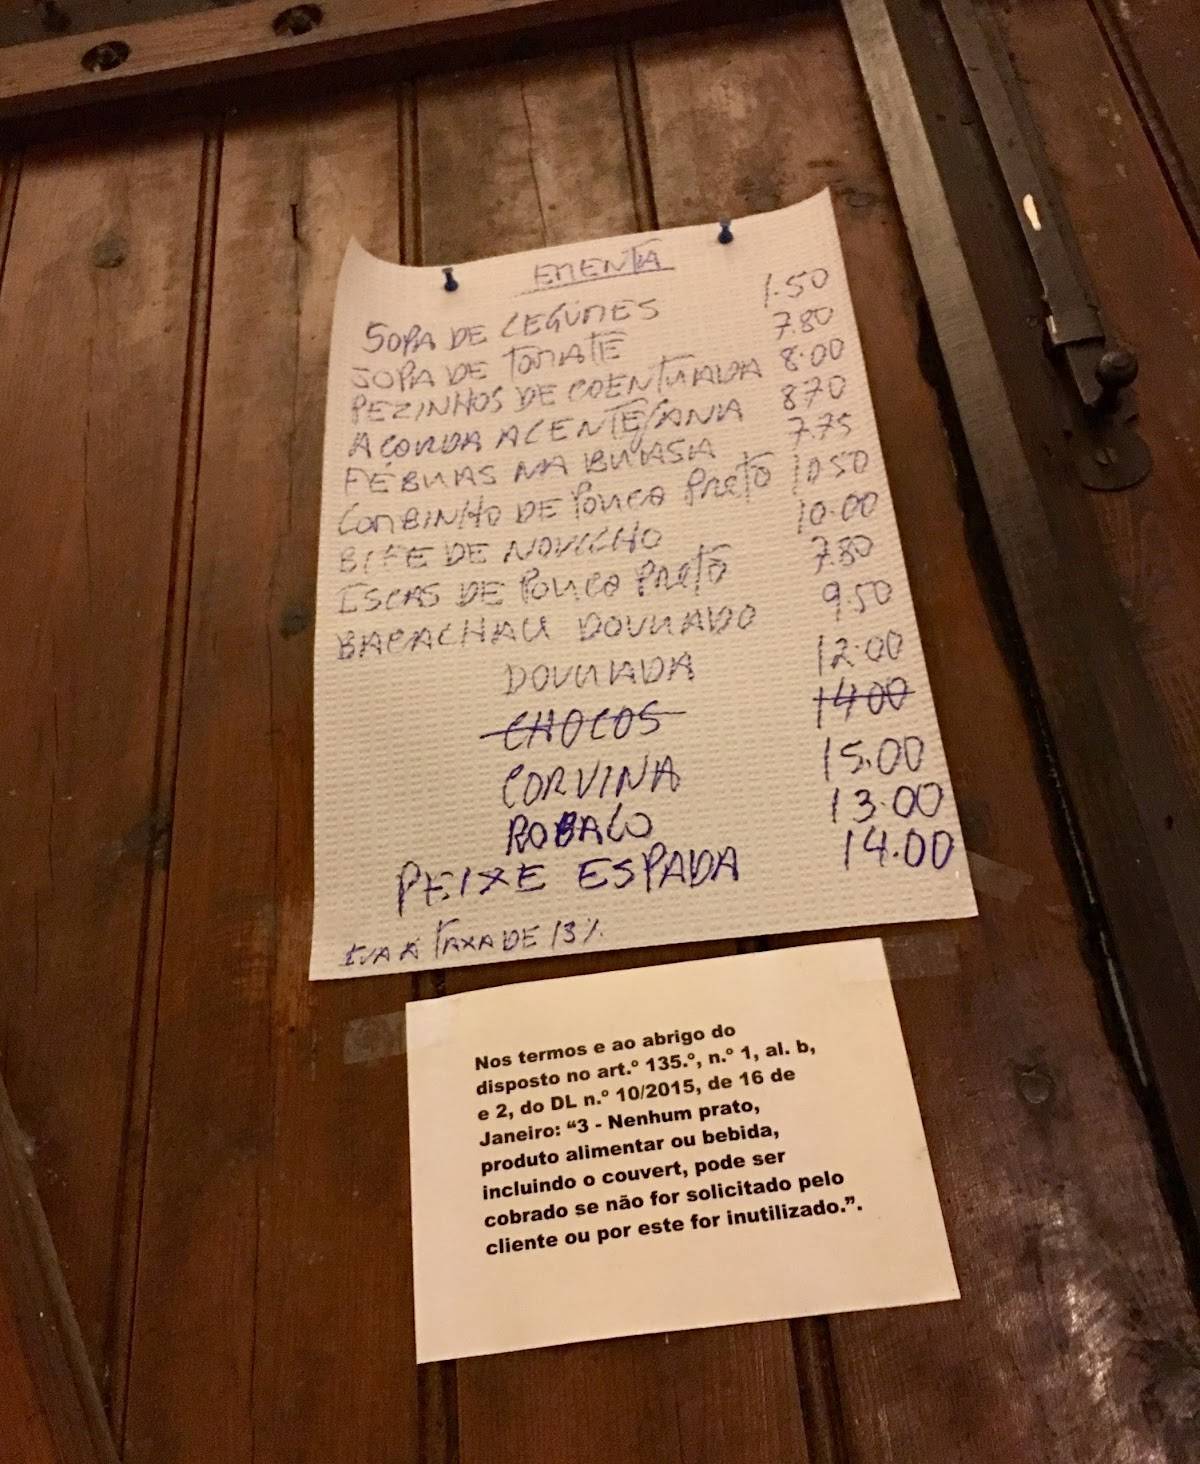 EMENTA
SOPA DE LEGUMES 1.50
SOPA DE TOMATE 7.80
PEZINHOS DE COENTRADA 8.00
AÇORDA ALENTEJANA 870
FÉBRAS NA BRASA 7.75
LOMBINHO DE PORCO PRETO 10.50
BIFE DE NOVILHO 10.00
ISCAS DE PORCO PRETO 7.80
BACALHAU DOURADO 9.50
DOURADA 12.00
CHOCOS 1400
CORVINA 15.00
ROBALO 13.00
PEIXE ESPADA 14.00
IVA À TAXA DE 13%
Nos termos e ao abrigo do
disposto no art.º 135.º, n.º 1, al. b,
e 2, do DL n.º 10/2015, de 16 de
Janeiro: “3 - Nenhum prato,
produto alimentar ou bebida,
incluindo o couvert, pode ser
cobrado se não for solicitado pelo
cliente ou por este for inutilizado.”.